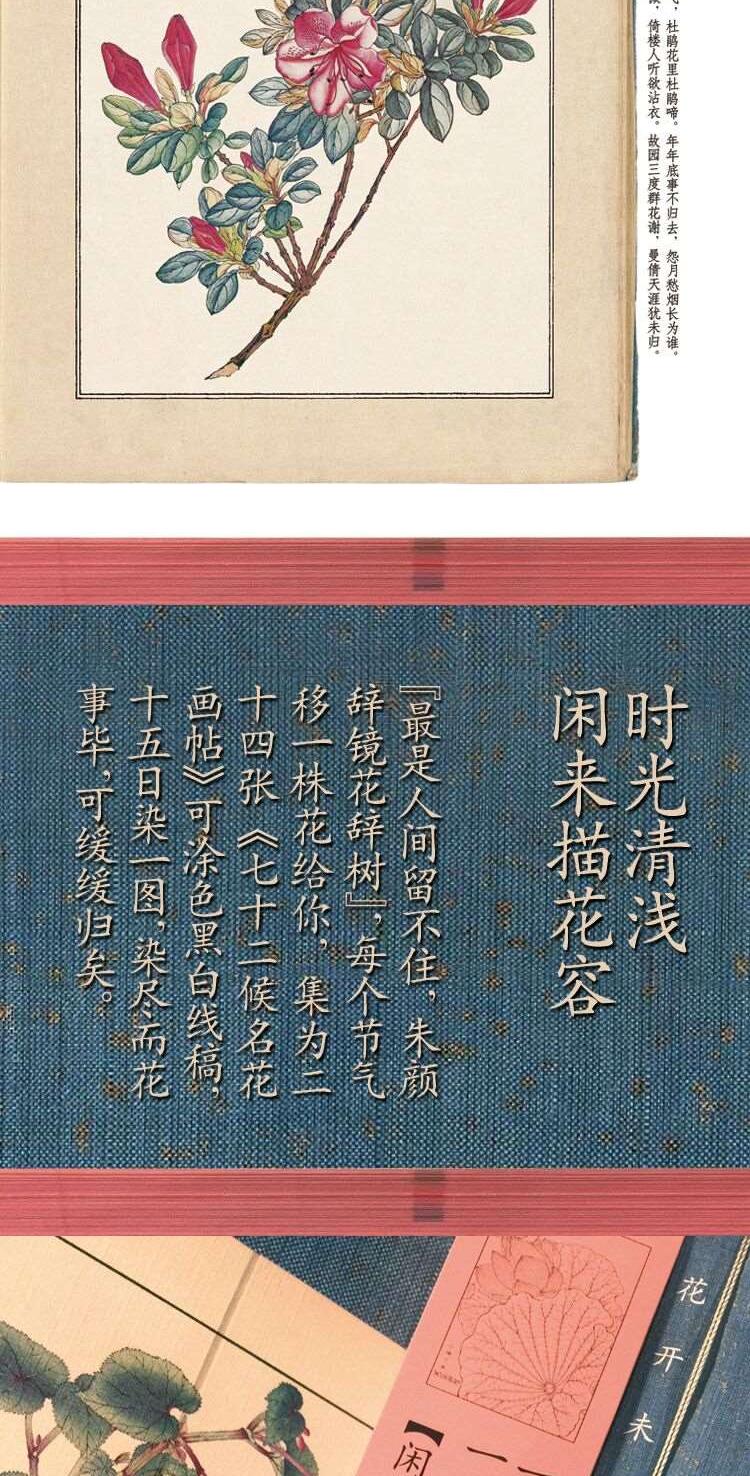 杜鹃花里杜鹃啼。年年底事不归去，怨月愁烟长为谁。
倚楼人听欲沾衣。故园三度群花谢，曼倩天涯犹未归。
时光清浅
闲来描花容
『最是人间留不住，朱颜
辞镜花辞树』，每个节气
移一株花给你，集为二
十四张《七十二候名花
画帖》可涂色黑白线稿，
十五日染一图，染尽而花
事毕，可缓缓归矣。
花开未
【闲
一一